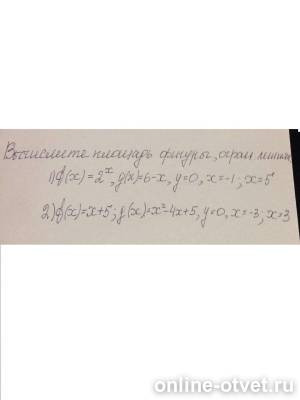 Вычислите площадь фигуры, огран. линиями
1) f(x) = 2ˣ, g(x)=6-x, y=0, x=-1; x=5
2) f(x)=x+5; g(x)=x²-4x+5, y=0, x=-3; x=3
online-otvet.ru